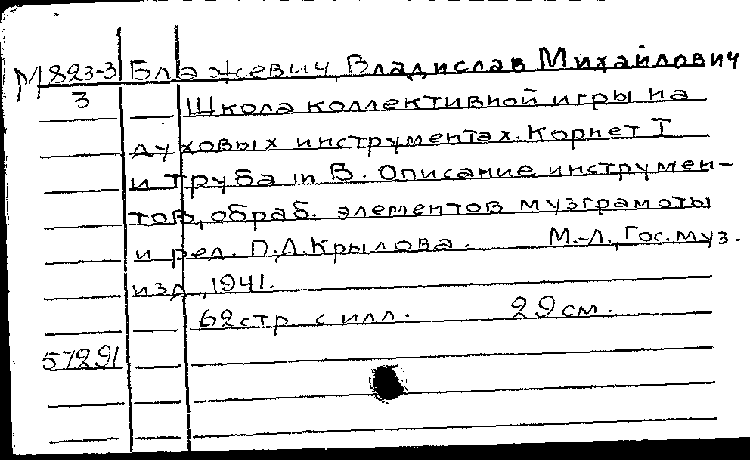 М 823-3 Блажевич, Владислав Михайлович
3 Школа коллективной игры на
духовых инструментах. Корнет I
и труба in B. Описание инструмен-
тов, обраб. элементов музграмоты
и ред. П.Л.Крылова. М.-Л., Гос. муз.
изд., 1941.
62стр. с илл. 29 см.
57291